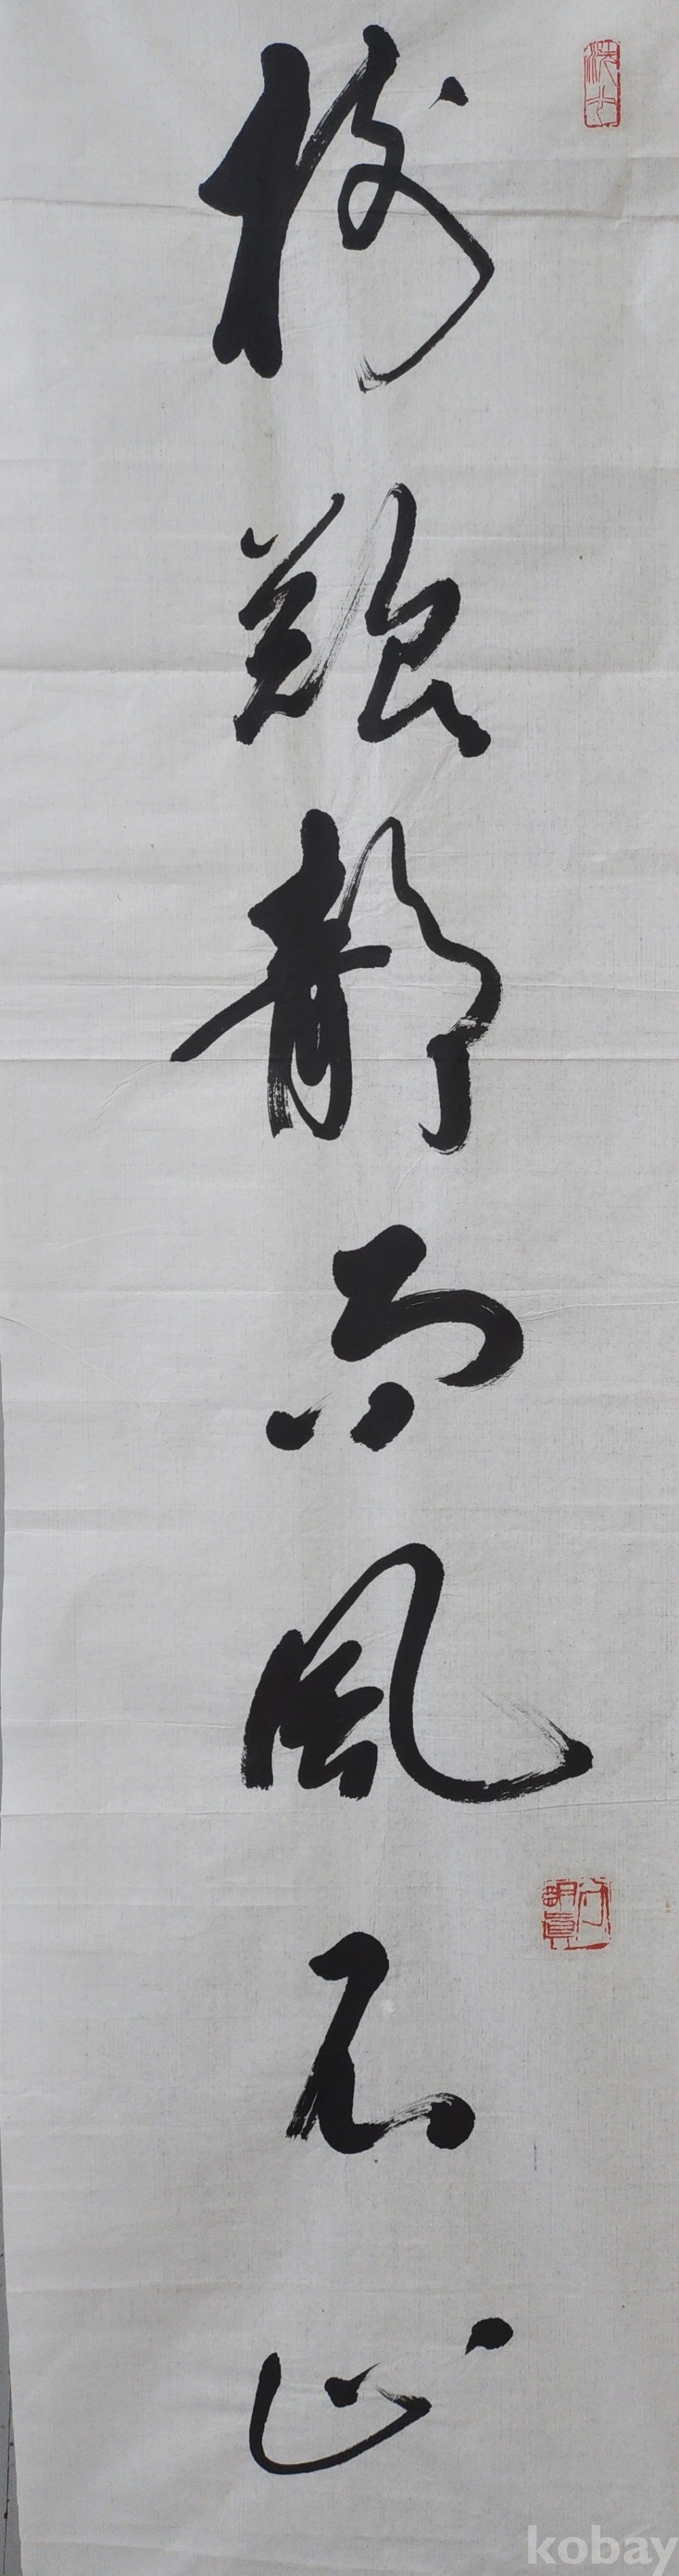 樹欲静而風不止
kobay